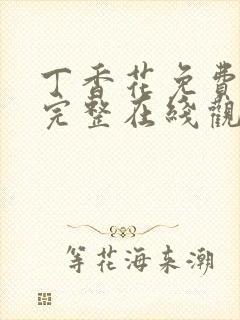 丁香花免費
完整在綫觀
等花海来潮